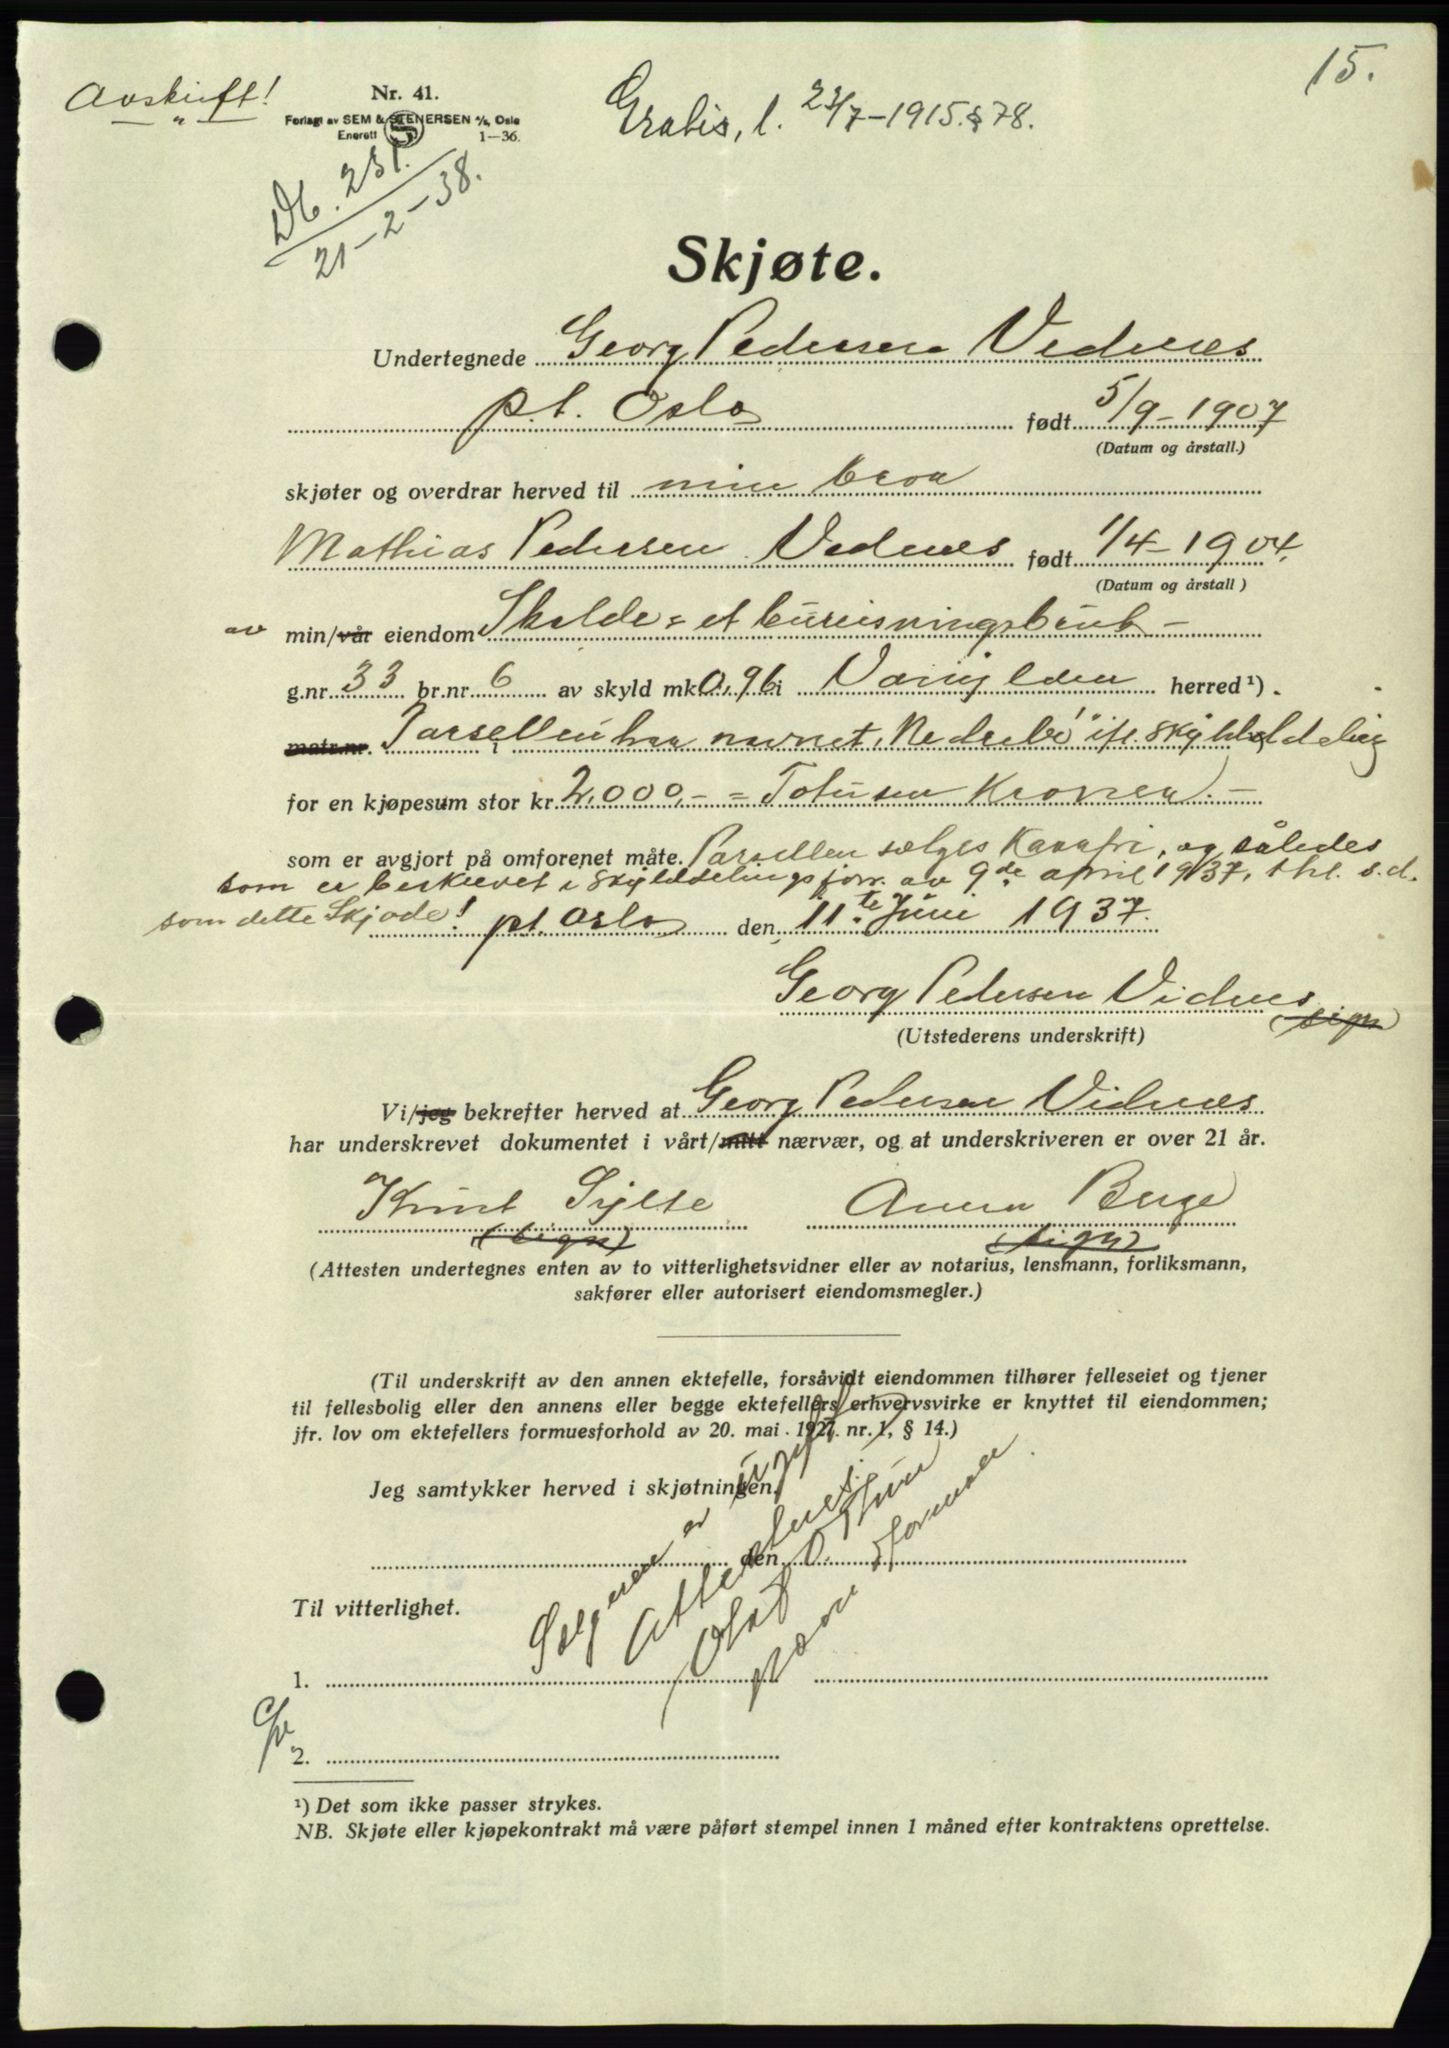 15.
Avskrift!
Nr. 41.
Forlagt av SEM & STENERSEN A/S, Oslo
Enerett 1—36.
Gratis, l. 22/7-1915. § 78.
Db. 251.
21-2-38.
Skjøte.
Undertegnede Georg Pedersen Vidnes
pt. Oslo født 5/9-1907
(Datum og årstall.)
skjøter og overdrar herved til min bror
Mathias Pedersen Vidnes født 1/4-1904.
(Datum og årstall)
av min/vår eiendom Skulde = et bureisningsbruk -
g.nr. 33 br.nr. 6 av skyld mk 0,96 i Vanylden herred ¹).
matr.nr. Parsellen har navnet, Nedrebö ifl. skylddeling
for en kjøpesum stor kr 2.000,- = Totusen Kroner. -
som er avgjort på omforenet måte. Parsellen sælges kavafri, og således
som er beskrevet i skylddelingsforr. av 9de april 1937, thl. s.d.
som dette Skjøde! pt. Oslo den 11te Juni 1937.
Georg Pedersen Vidnes
(sign)
(Utstederens underskrift)
Vi/jeg bekrefter herved at Georg Pedersen Vidnes
har underskrevet dokumentet i vårt/mitt nærvær, og at underskriveren er over 21 år.
Knut Sylte Anna Berge
(sign) (sign)
(Attesten undertegnes enten av to vitterlighetsvidner eller av notarius, lensmann, forliksmann,
sakfører eller autorisert eiendomsmegler.)
(Til underskrift av den annen ektefelle, forsåvidt eiendommen tilhører felleseiet og tjener
til fellesbolig eller den annens eller begge ektefellers erhvervsvirke er knyttet til eiendommen;
jfr. lov om ektefellers formuesforhold av 20. mai 1927. nr. 1, § 14.)
Jeg samtykker herved i skjøtningen.
den
Sælgeren er ugift
Attesteres:
Olaf O. Thun
Til vitterlighet.
1.
2.
¹) Det som ikke passer strykes.
NB. Skjøte eller kjøpekontrakt må være påført stempel innen 1 måned efter kontraktens oprettelse.